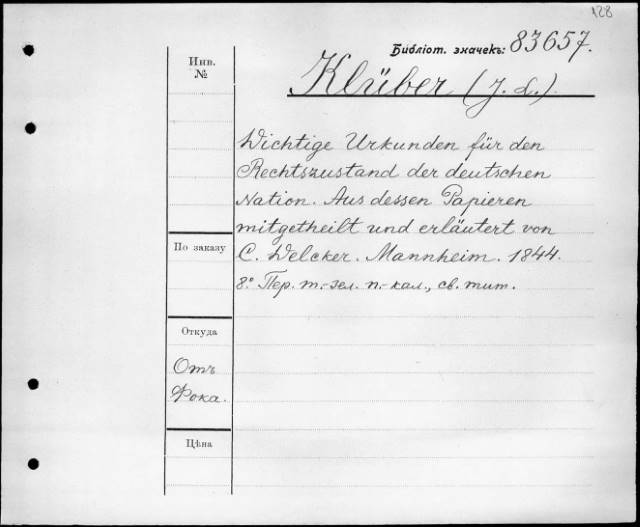 128
Библіот. значекъ: 83657.
Инв.
№
Klüber (J. L.).
Wichtige Urkunden für den
Rechtszustand der deutschen
Nation. Aus dessen Papieren
mitgetheilt und erläutert von
C. Welcker. Mannheim. 1844.
8º Пер. т.-зел. п.-кал., св. тит.
По заказу
Откуда
Отъ
Фока.
Цѣна